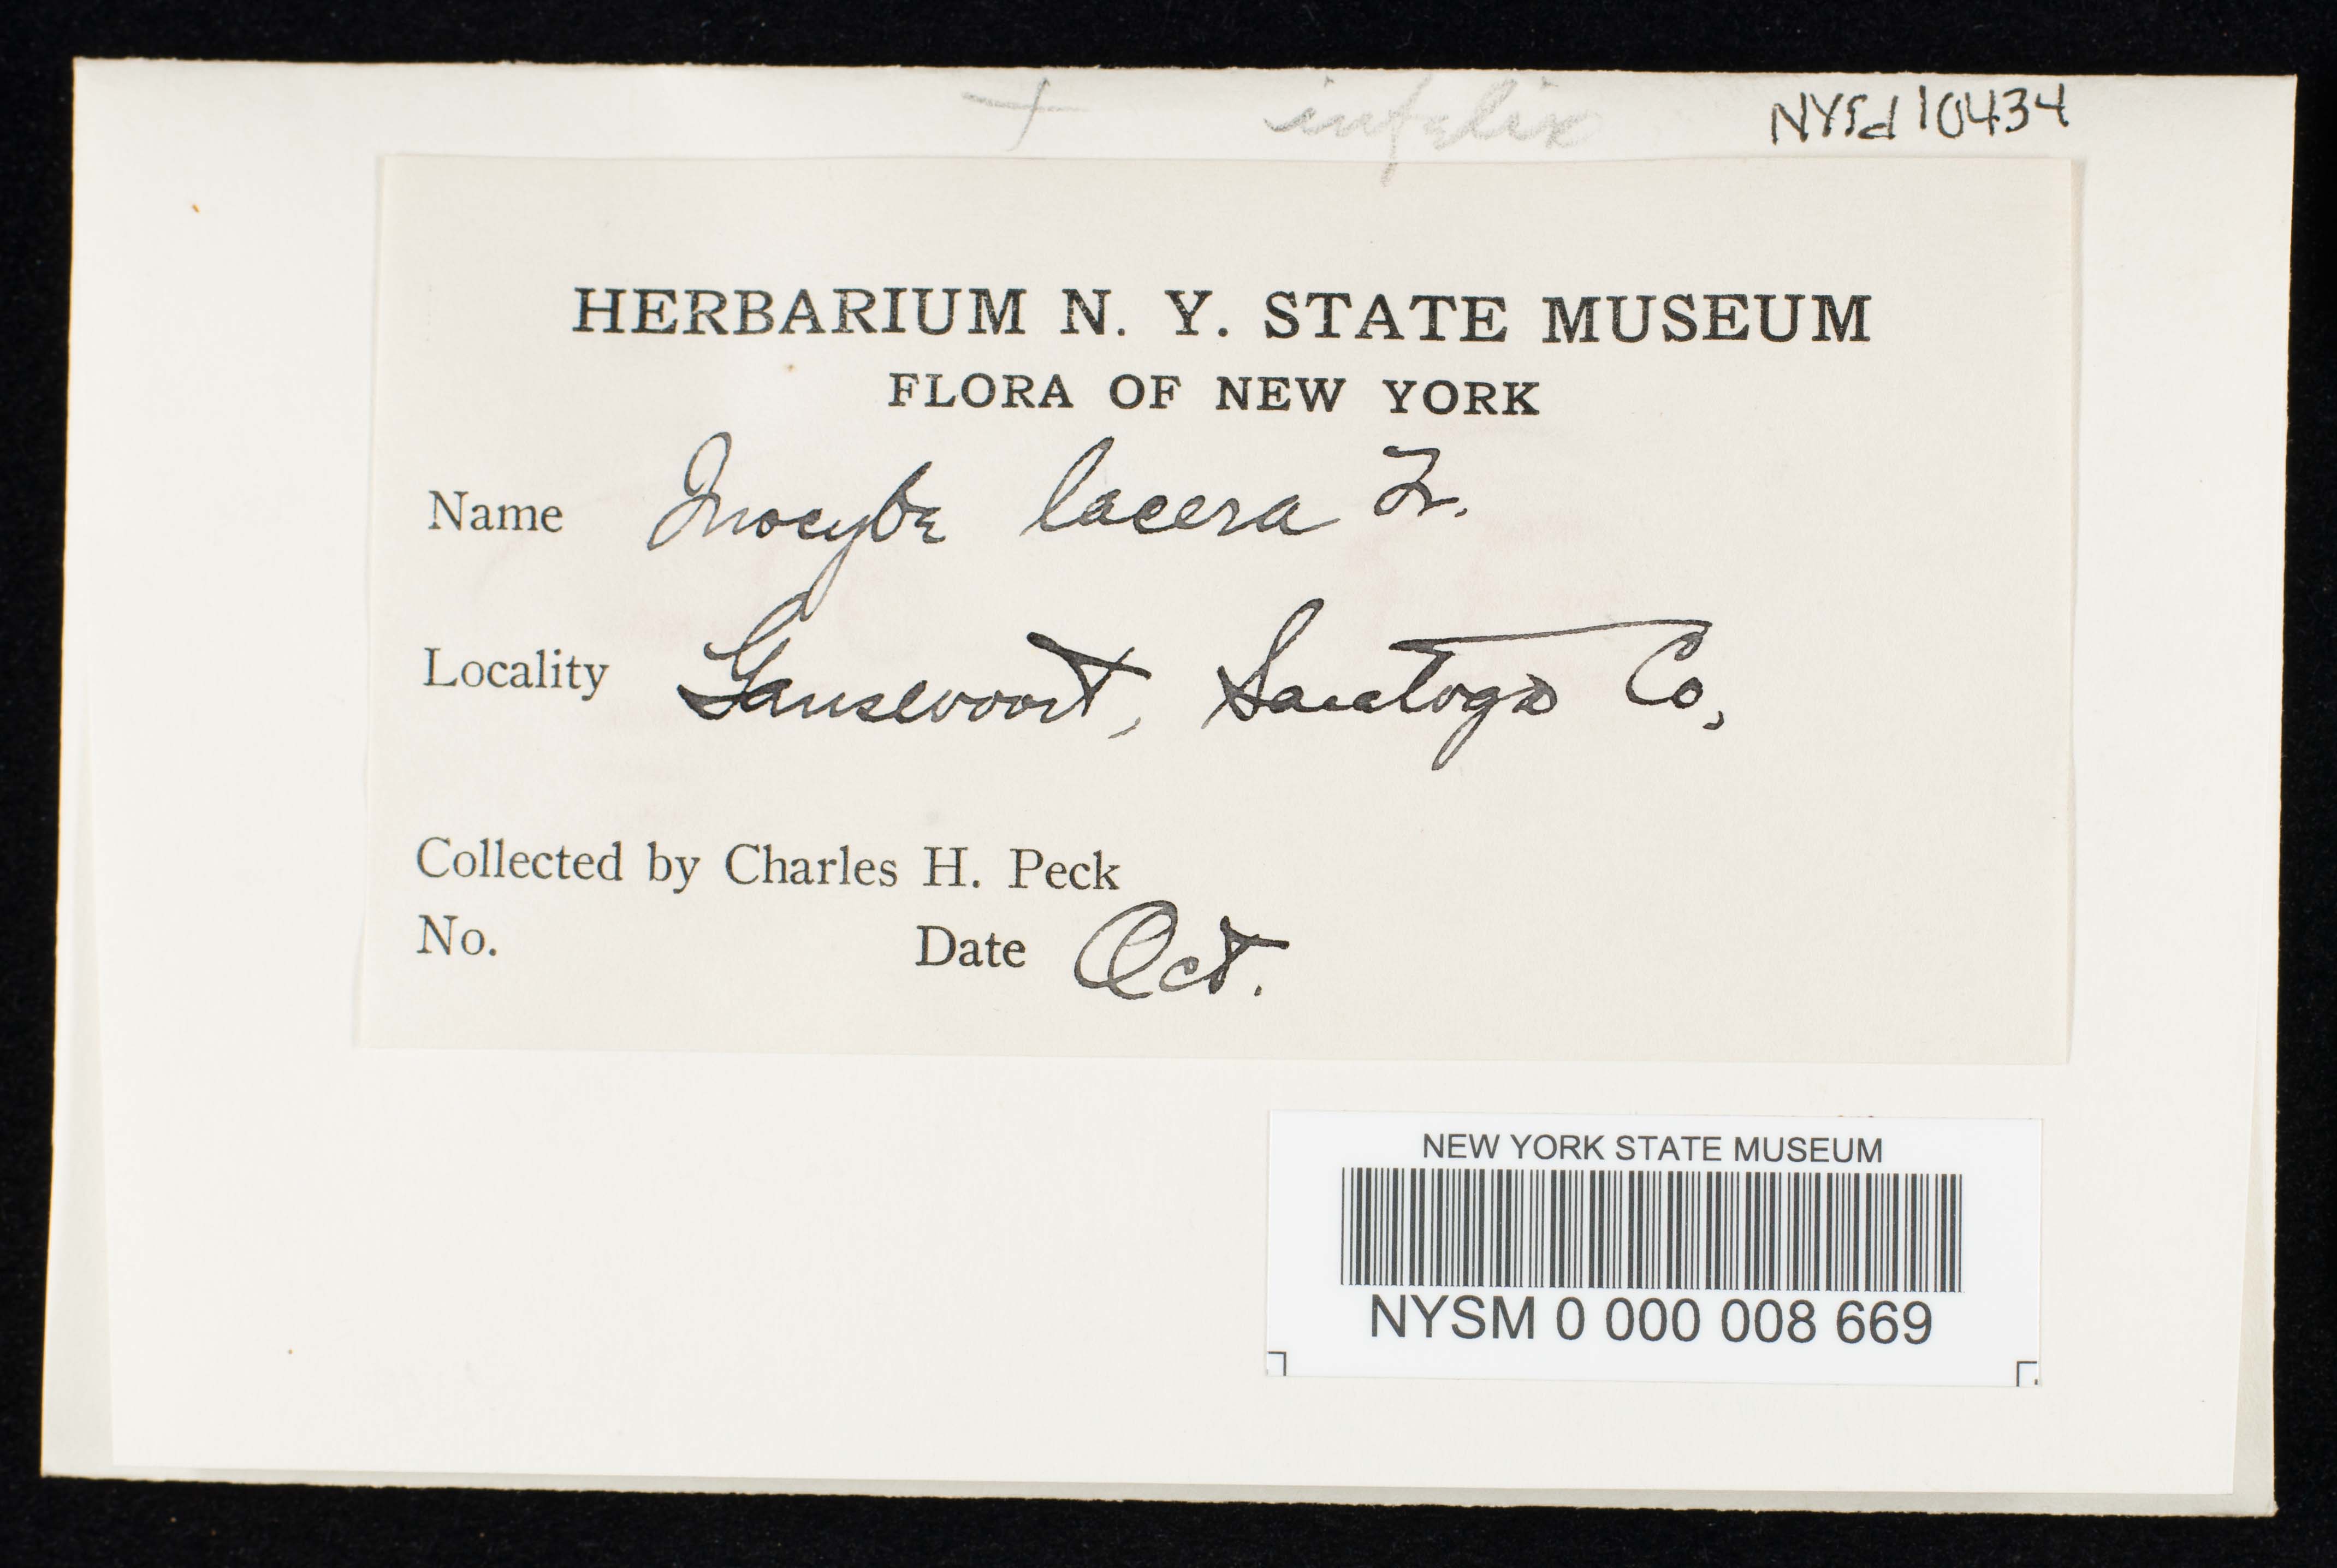 + infelix NYSd 10434
HERBARIUM N. Y. STATE MUSEUM
FLORA OF NEW YORK
Name Inocybe lacera Fr.
Locality Gansevoort, Saratoga Co,
Collected by Charles H. Peck
No. Date Oct.
NEW YORK STATE MUSEUM
NYSM 0 000 008 669